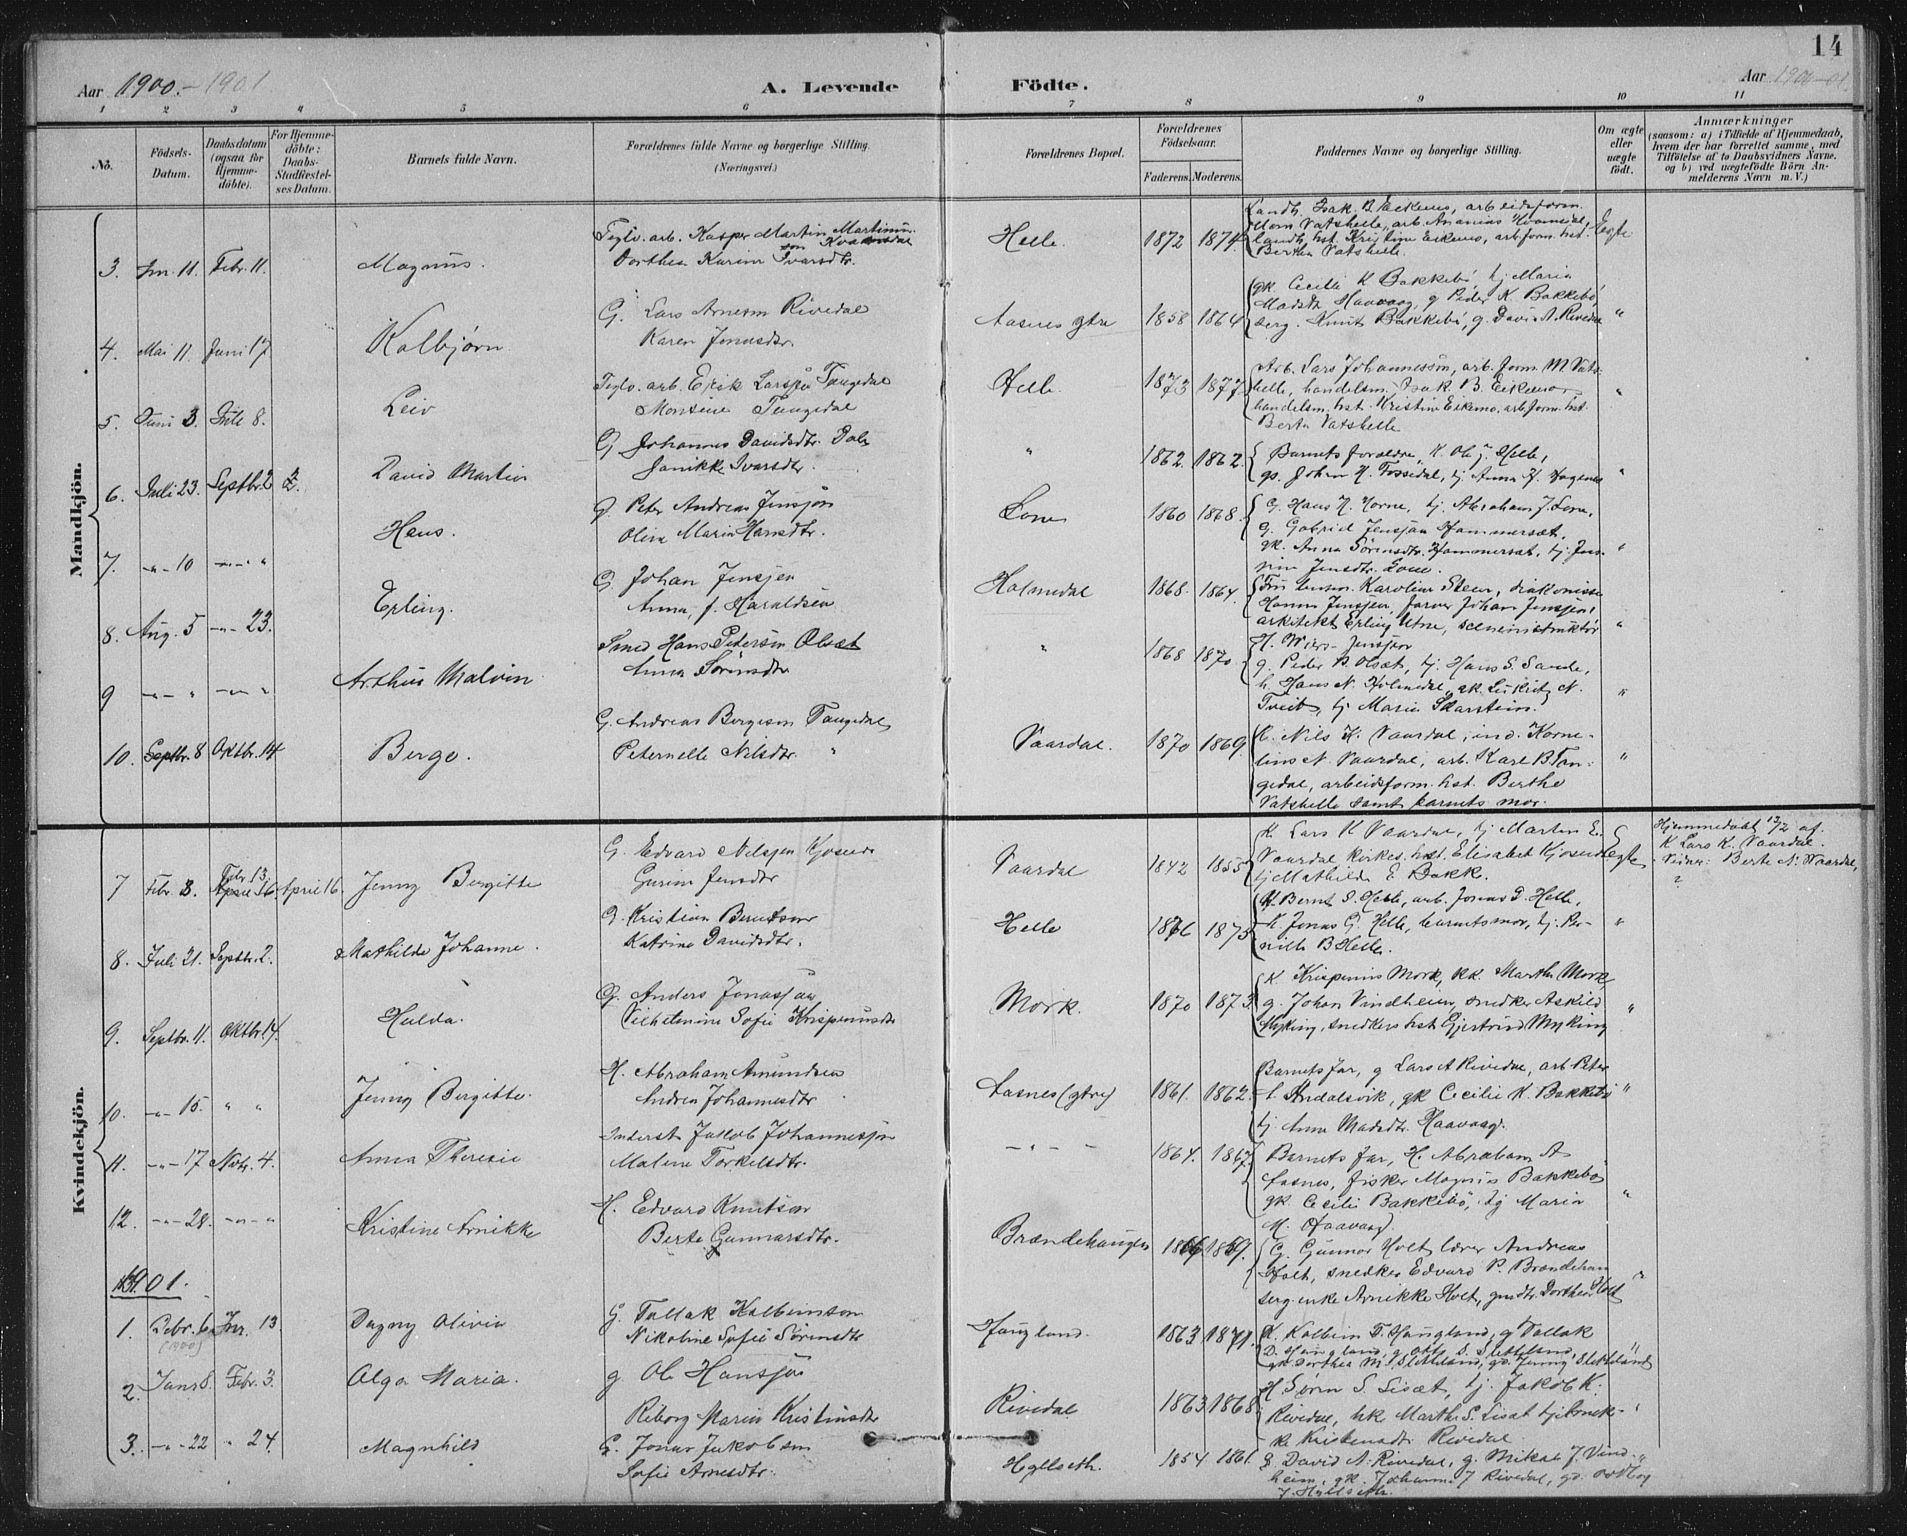 14
Aar 1900.-1901
A. Levende Födte.
Aar 1900-01
1 2 3 4 5 6 7 8 9 10 11
No.
Födsels-Datum.
Daabsdatum (ogsaa for Hjemmedöbte).
For Hjemmedöbte: Daabs-Stadfæstelses Datum.
Barnets fulde Navn.
Forældrenes fulde Navne og borgerlige Stilling. (Næringsvei.)
Forældrenes Bopæl.
Forældrenes Födselsaar.
Faderens. Moderens.
Faddernes Navne og borgerlige Stilling.
Om ægte eller uægte födt.
Anmærkninger
(saasom: a) i Tilfælde af Hjemmedaab, hvem der har forrettet samme, med Tilföielse af to Daabsvidners Navne, og b) ved uægtefödte Börn Anmelderens Navn m. V.)
Mandkjön.
3. Jan. 11. Febr. 11. Magnus. Teglv. arb. Kasper Martin Martinusson Kvamsdal
Dorthea Karine Ivarsdtr. Helle. 1872 1874 Ægte
Landh. Isak B. Eekemo, arbeidsform.
Mons Vatshelle, arb. Ananias Kvamsdal,
landh. hst. Kristine Eekemo, arb.form. hst.
Berthe Vatshelle.
4. Mai 11. Juni 17 Kolbjørn G. Lars Arnesen Rivedal
Karen Jonasdtr. Aasnes gtre 1858 1864 "
gk. Cecilie K Bakkebö, tj Maria
Madsdtr Haavaag, g Peder K. Bakkebö,
serg. Knut Bakkebö, g. David A. Rivedal
5. Juni 3. Juli 8. Leiv Teglv. arb. Erik Larsen Tangedal
Monsine Tangedal Helle 1873 1877 "
Arb. Lars Johannesson, arb. form. M Vats-
helle, handelsm. Isak. B. Eekemo,
handelsm. hst. Kristine Eekemo, arb.form. hst.
Berta Vatshelle
6. Juli 23. Septbr. 2 David Martin G Johannes Davidsdtr. Dale
Janikke Ivarsdtr. " 1862. 1862. "
Barnets forældre, K. Ole J. Helle,
gs. Johan H. Fossedal, tj. Anna H.
7. -"- 10 -"- " Hans. G Peter Andreas Jensson
Oline Marie Hansdtr. Lone 1860 1868. "
G. Hans H. Horne, tj. Abraham J. Lone,
G. Gabriel Jensson Hammersæt,
gk. Anna Sörensdtr. Hammersæt, tj. Jen-
sine Jensdtr. Lone.
8. Aug. 5 -"- 23. Erling. G Johan Jensson
Anna, f. Haraldsen Holmedal 1868. 1864. "
Karoline Steen, diakonisse
Hanna Jenssen, farver Johan Jenssen,
arkitekt Erling Utne, sceneinstruktør
H. Wiers-Jenssen
9 -"- " -"- " Arthur Malvin. Smed Hans Pedersen Olset
Anna Sörensdtr " 1868 1870 "
g. Peder P. Olsæt, tj. Hans S. Sande,
h. Hans N. Holmedal, gk. N.
Tveit, tj Marie Skarstein.
10. Septbr. 8 Oktbr. 14 Berge. G. Andreas Bergeson Tangedal
Peternelle Nilsdtr " Vaardal. 1870 1869. "
K. Nils K. Vaardal, ind. Korne-
lius N. Vaardal, arb. Karl B Tan-
gedal, arbeidsform. hst. Berthe
Vatshelle samt barnets mor.
Kvindekjön.
7 Febr. 3. Febr. 13. April 16 April 16. Jenny Bergitte G. Edvard Nilssen Kjosund
Gurine Jensdtr Vaardal 1842 1855 Ægte
K. Lars K Vaardal, tj Marten E.
Vaardal kirkes. hst. Elisabet Kjosund
tj Mathilde E. Bakk.
Hjemmedöbt 13/2 af
K Lars K. Vaardal.
Vidner: Berte N. Vaardal,
?
8. Juli 21. Septbr. 2. Mathilde Johanne. G. Kristian Berntson
Katrine Davidsdtr. Helle 1876 1875 "
K. Bernt S. Helle, arb. Jonas G. Helle,
K Jonas G. Helle, barnets mor, tj. Per-
nille B Helle.
9. Septbr. 11. Oktbr. 14. Hulda. G. Anders Jonassen
Vilhelmine Sofie Krispinusdtr Mork. 1870 1873 "
K. Krispinus Mork, kk. Marthe Mork
g. Johan Vindheim, snedker Askild
Myking, snedkers hst Gjertrud Myking
10. -"- 15. " " Jenny Bergitte. H. Abraham Amundsen
Andrea Johannesdtr Aasnes (gtre) 1861. 1862. "
Barnets far, g Lars A Rivedal, arb Peter
Andalsvik, gk Cecilie K. Bakkebö
tj. Anna Madsdtr. Haavaag.
11. -"- 17 Novbr. 4. Anna Theresie Inderst Jakob Johannessen
Malene Torkelsdtr. -"- 1864. 1867. "
Barnets far, H. Abraham A
Aasnes, fisker Magnus Bakkebö
gk. Cecilie Bakkebö, tj Maria
M. Haavaag.
12. -"- 28. -"- " Kristine Arnikke H. Edvard Knutson
Berte Gunnarsdtr. Brændehaugen 1869. "
G. Gunnar Holt lærer Andreas
Holt, snedker Edvard P. Brændehau
serg enke Arnikke Holt, gmdtr. Dorthea Holt
1901.
1. Decbr. 6 (1900) Jan. 13 Dagny Olivia G. Tallak Kolbeinson
Nikoline Sofie Sörensdtr Haugland. 1863 1871. "
K. Kolbein T. Haugland, g Tallak
D. Haugland, g. Otto S. Sletteland,
gk. Dorthea M. Sletteland, gd. Jenny Sletteland
2. Jan 8. Febr. 3. Olga Maria. g. Ole Hansson
Riborg Marie Kristensdtr Rivedal 1863 1868
H. Sören S. Lisæt, tj. Jakob K.
Rivedal, hk. Marthe S. Lisæt
Kristensdtr Rivedal.
3. -"- 22 " 24. Magnhild G. Jonas Jakobsen
Sofie Arnesdtr. Hyllseth. 1854 1861. "
g. David A. Rivedal, g. Mikal J. Vind-
heim, gk. Johanne J Rivedal, gd. Oddlog
J. Hyllseth.